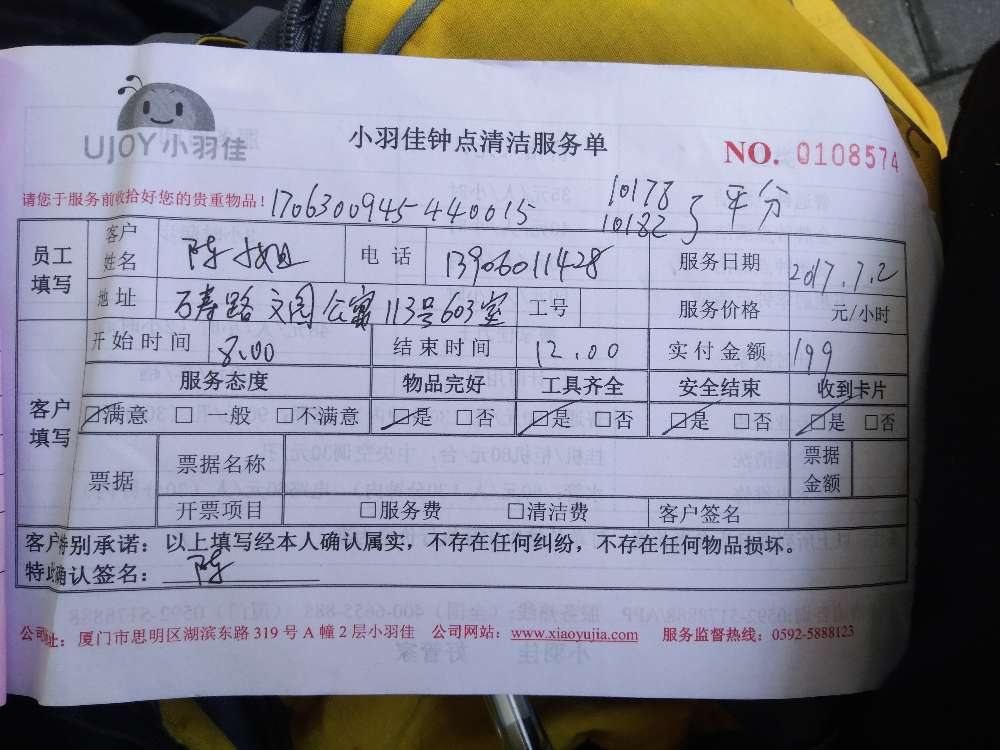 UJOY小羽佳
小羽佳钟点清洁服务单
NO. 0108574
请您于服务前收拾好您的贵重物品！
1706300945440015
10178
10182 平分
员工填写 客户姓名 陈小姐 电话 13906011428 服务日期 2017.7.2
地址 石寿路文园公寓113号603室 工号 服务价格 元/小时
客户填写 开始时间 8.00 结束时间 12.00 实付金额 199
服务态度 物品完好 工具齐全 安全结束 收到卡片
☑满意 □一般 □不满意 ☑是 □否 ☑是 □否 ☑是 □否 ☑是 □否
票据 票据名称 票据金额
开票项目 □服务费 □清洁费 客户签名
客户特别承诺：以上填写经本人确认属实，不存在任何纠纷，不存在任何物品损坏。
特此确认签名：陈
公司地址：厦门市思明区湖滨东路319号A幢2层小羽佳 公司网站：www.xiaoyujia.com 服务监督热线：0592-5888123